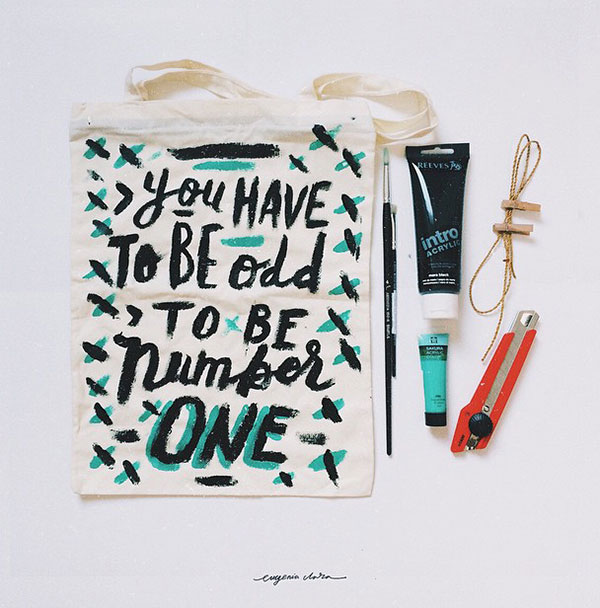 > you HAVE
TO BE odd
> TO BE
number
ONE
REEVES
intro
ACRYLIC
mars black
SAKURA
eugenia clara